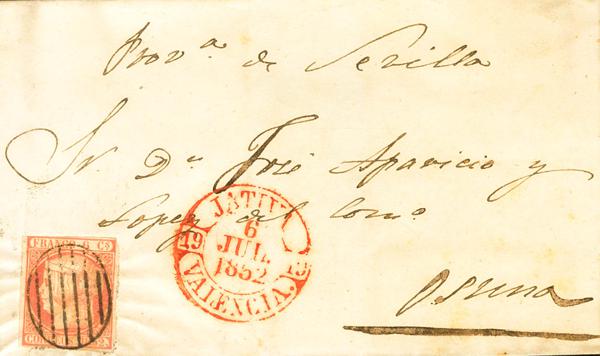 Prov.ª de Sevilla
Sr. Dn. José Aparicio y
Lopez del Comº
Osuna
JATIVA
6
JUL.
1852
19
VALENCIA.
FRANCO 6 Cs